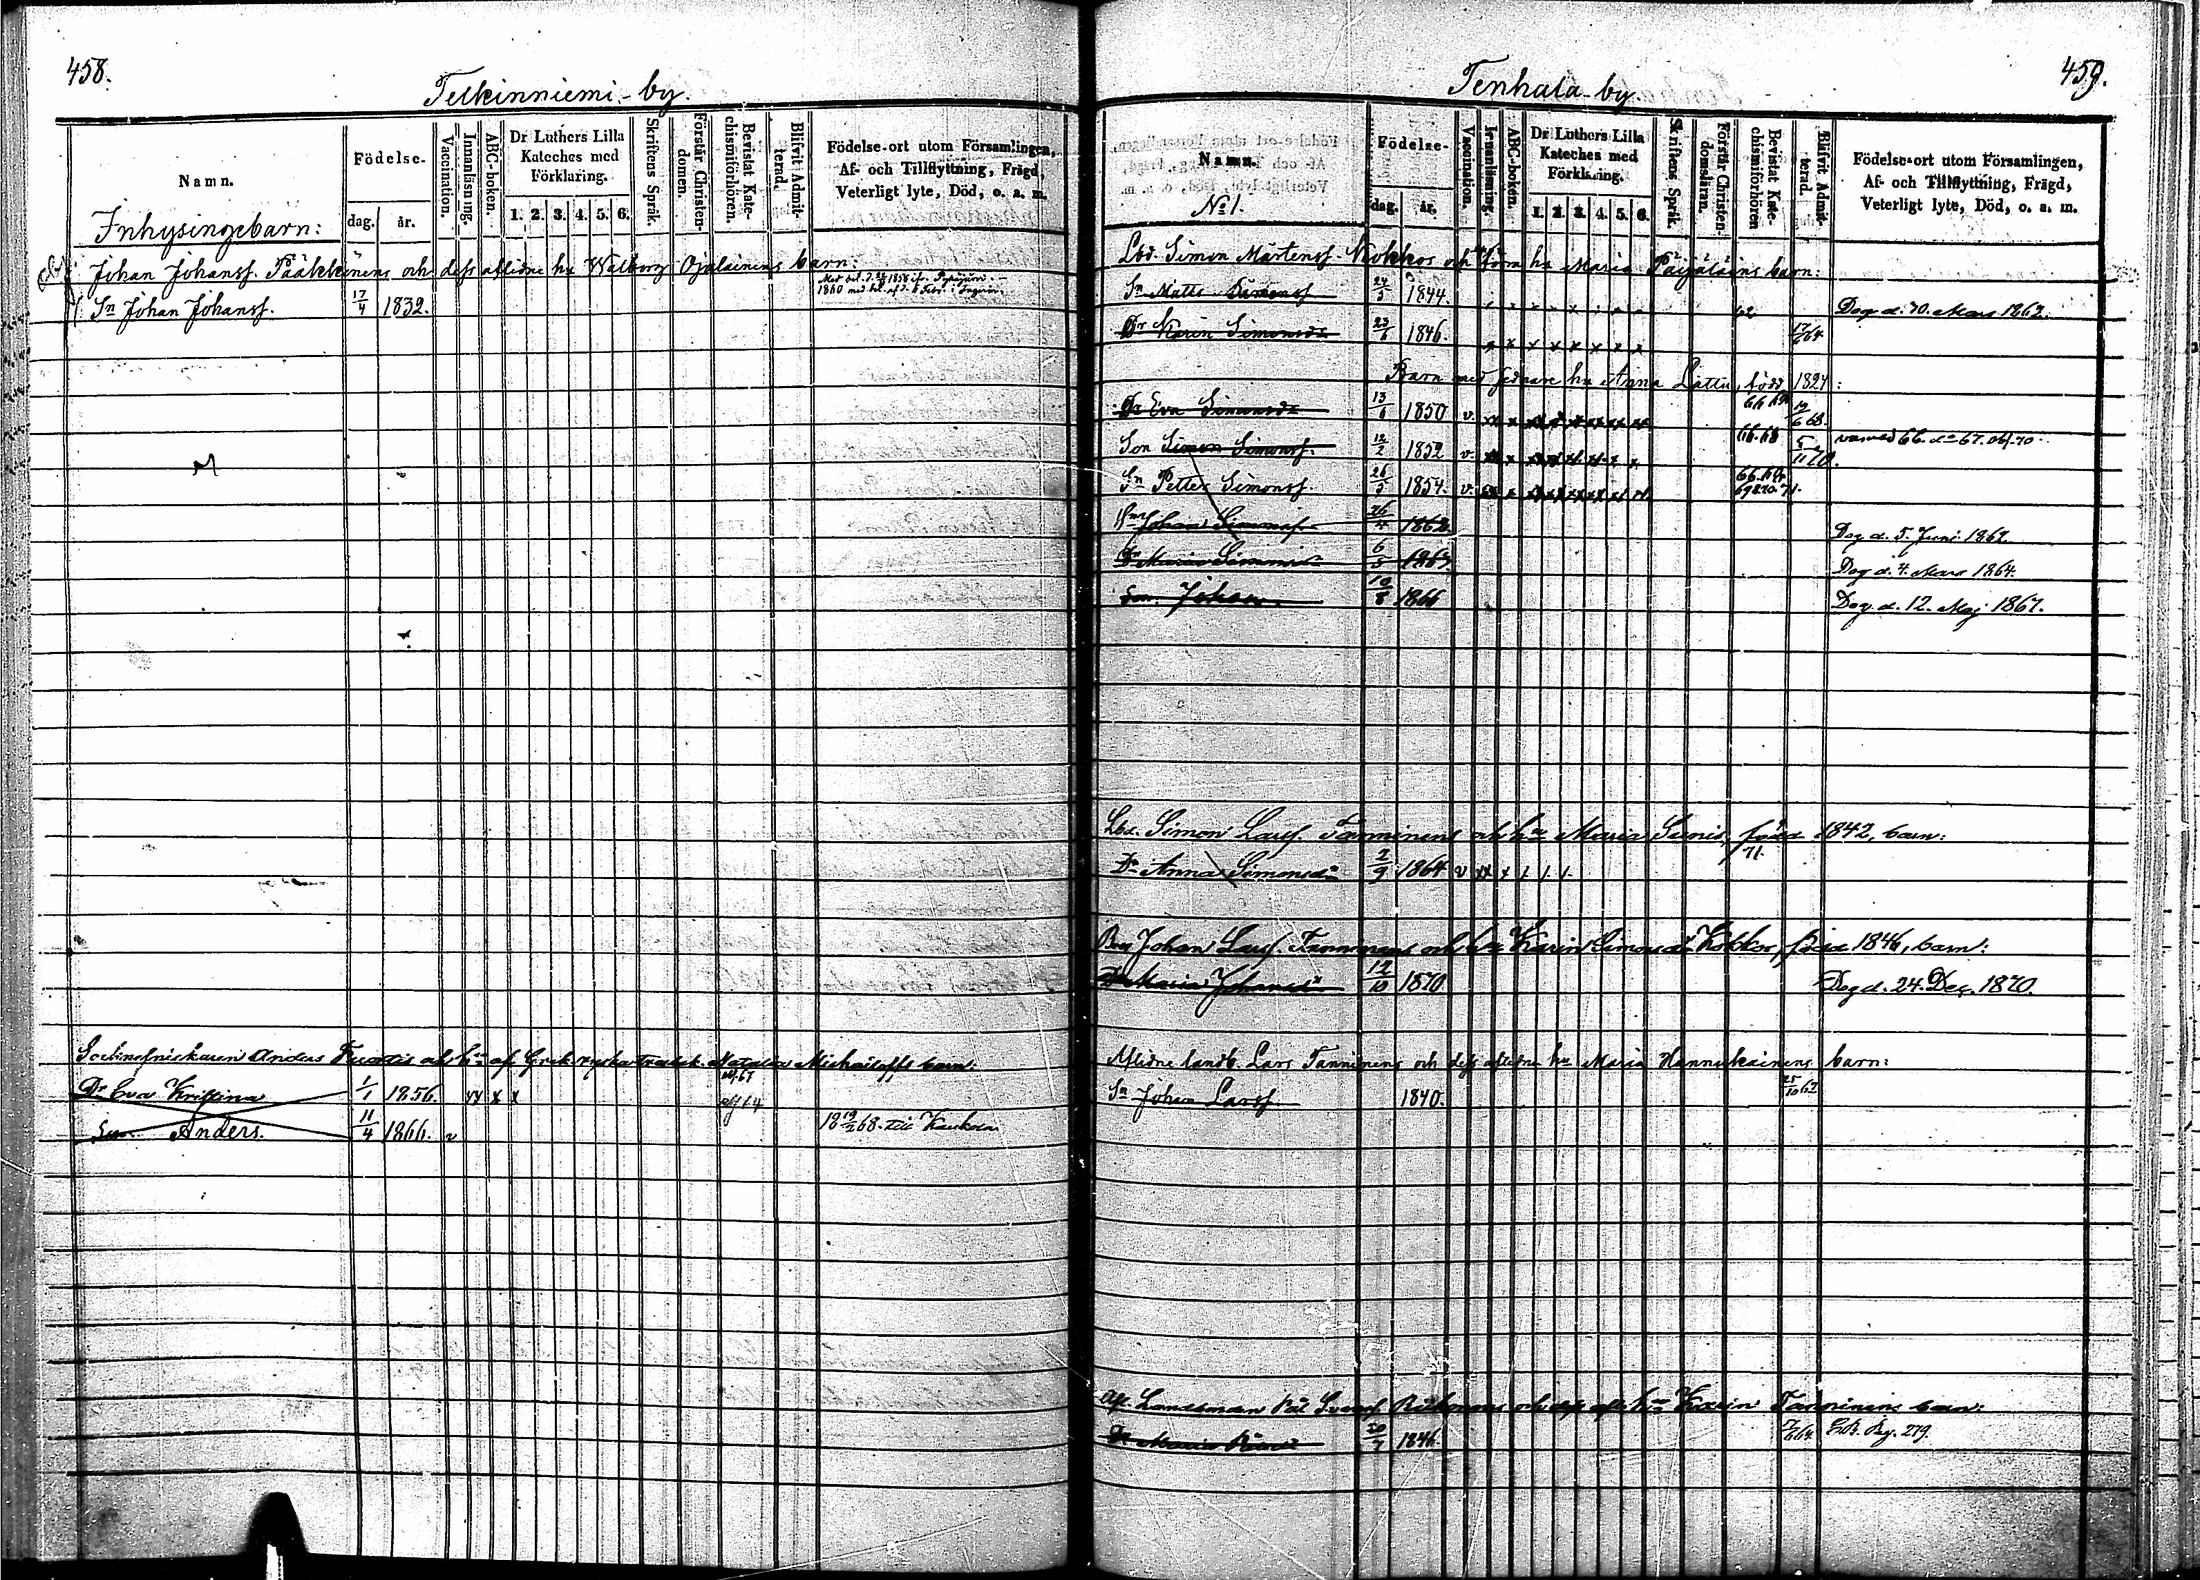 458.
Telkinniemi-by.
Namn.
Födelse-
dag.
år.
Vaccination.
Innanläsning.
ABC-boken.
Dr Luthers Lilla Kateches med Förklaring.
1. 2. 3. 4. 5. 6.
Skriftens Språk.
Förstår Christendomen.
Bevistat Katechismiförhören.
Blifvit Admitterad.
Födelse-ort utom Församlingen,
Af- och Tillflyttning, Frägd,
Veterligt lyte, Död, o. a. m.
Inhysingebarn:
Johan Johanss. Pääkkönens och dess aflidne hu Walborg Ojalainens barn:
Sn Johan Johanss. 17/4 1832.
Sockneskaren Anders och hu af Grek. ryska Natalia Michailoffs barn:
Dr Eva Kristina 1/1 1856. xx x x
Son Anders. 11/4 1866. v 18 19/2 68. till Kaukola
459.
Tenhala-by.
Namn.
No 1.
Födelse-
dag.
år.
Vaccination.
Innanläsning.
ABC-boken.
Dr Luthers Lilla Kateches med Förklaring.
1. 2. 3. 4. 5. 6.
Skriftens Språk.
Förstår Christendomsläran.
Bevistat Katechismiförhören
Blifvit Admitterad.
Födelse-ort utom Församlingen,
Af- och Tillflyttning, Frägd,
Veterligt lyte, Död, o. a. m.
Lbd. Simon Mårtenss. Kokkos och förra hu Maria Päijäläins barn:
Sn Matts Simonss. 24/3 1844. 62 Dog d. 30. Mars 1862.
Dr Karin Simonsdr 23/6 1846. x x x x x x x x 17/6 64
Barn med sednare hu Anna Lättu, född 1824:
Dr Eva Simonsdr 13/6 1850 v. 19/6 68.
Son Simon Simonss. 12/2 1852 v. 66. 68 5/11 70.
Sn Petter Simonss. 26/3 1854. v. 66. 69 & 70. 71.
Sn Johan Simonss. 26/4 1862 Dog d. 5. Juni 1862.
Dr Maria Simonsdr 6/5 1863 Dog d. 4. Mars 1864.
Son. Johan. 10/8 1866 Dog d. 12. Maj 1867.
Lbd. Simon Larss. Tanninens och hu Maria Sunis, född 1842, barn:
Dr Anna Simonsdr 2/9 1864 v xx x 71.
Johan Larss. Tanninens och hu Karin Simonsdr Kokkos, född 1846, barn:
Dr Maria Johansdr 12/10 1870 Dog d. 24. Dec. 1870.
Aflidne landb. Lars Tanninens och dess aflidne hu Maria Hannukainens barn:
Sn Johan Larss. 1840. 25/10 62
Afl. Landbonden Pål Svenss. och dess afl. hu Karin Tanninens barn:
Dr Maria Pålsdr 20/7 1846. Pag. 279.